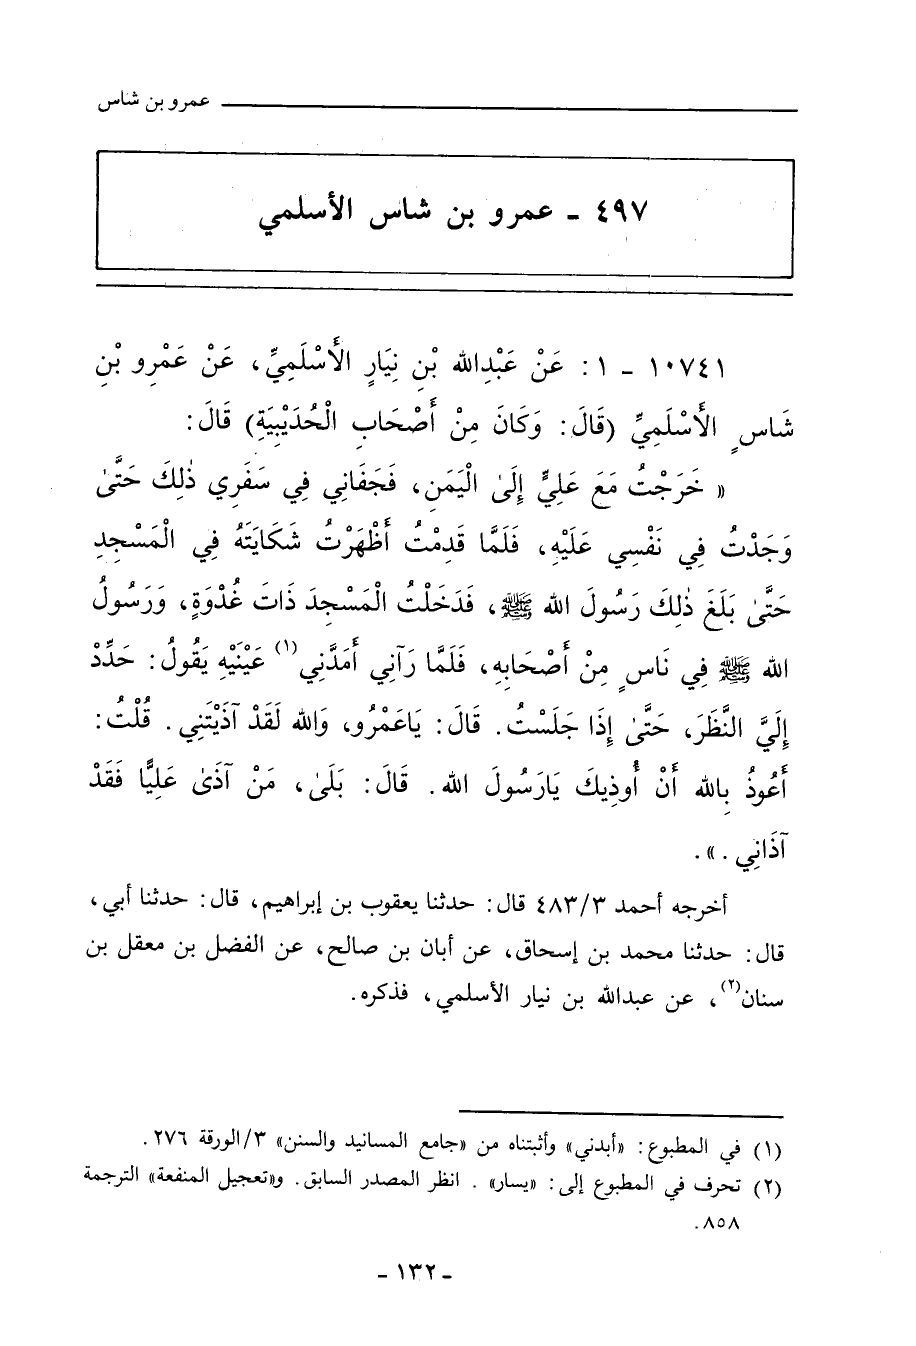 عمرو بن شاس
٤٩٧ - عمرو بن شاس الأسلمي
١٠٧٤١ - ١ : عَنْ عَبْدِاللهِ بْنِ نِيَارٍ الأَسْلَمِيِّ، عَنْ عَمْرِو بْنِ
شَاسٍ الأَسْلَمِيِّ (قَالَ: وَكَانَ مِنْ أَصْحَابِ الْحُدَيْبِيَةِ) قَالَ:
« خَرَجْتُ مَعَ عَلِيٍّ إِلَىٰ الْيَمَنِ، فَجَفَانِي فِي سَفَرِي ذٰلِكَ حَتَّىٰ
وَجَدْتُ فِي نَفْسِي عَلَيْهِ، فَلَمَّا قَدِمْتُ أَظْهَرْتُ شَكَايَتَهُ فِي الْمَسْجِدِ
حَتَّىٰ بَلَغَ ذٰلِكَ رَسُولَ اللهِ ﷺ، فَدَخَلْتُ الْمَسْجِدَ ذَاتَ غُدْوَةٍ، وَرَسُولُ
اللهِ ﷺ فِي نَاسٍ مِنْ أَصْحَابِهِ، فَلَمَّا رَآنِي أَمَدَّنِي(١) عَيْنَيْهِ يَقُولُ: حَدَّدْ
إِلَيَّ النَّظَرَ، حَتَّىٰ إِذَا جَلَسْتُ. قَالَ: يَاعَمْرُو، وَاللهِ لَقَدْ آذَيْتَنِي. قُلْتُ:
أَعُوذُ بِاللهِ أَنْ أُوذِيكَ يَارَسُولَ اللهِ. قَالَ: بَلَىٰ، مَنْ آذَىٰ عَلِيًّا فَقَدْ
آذَانِي .» .
أخرجه أحمد ٤٨٣/٣ قال: حدثنا يعقوب بن إبراهيم، قال: حدثنا أبي،
قال: حدثنا محمد بن إسحاق، عن أبان بن صالح، عن الفضل بن معقل بن
سنان(٢)، عن عبدالله بن نيار الأسلمي، فذكره.
(١) في المطبوع: «أبدني» وأثبتناه من «جامع المسانيد والسنن» ٣/الورقة ٢٧٦ .
(٢) تحرف في المطبوع إلى: «يسار» . انظر المصدر السابق. و«تعجيل المنفعة» الترجمة
٨٥٨ .
- ١٣٢ -